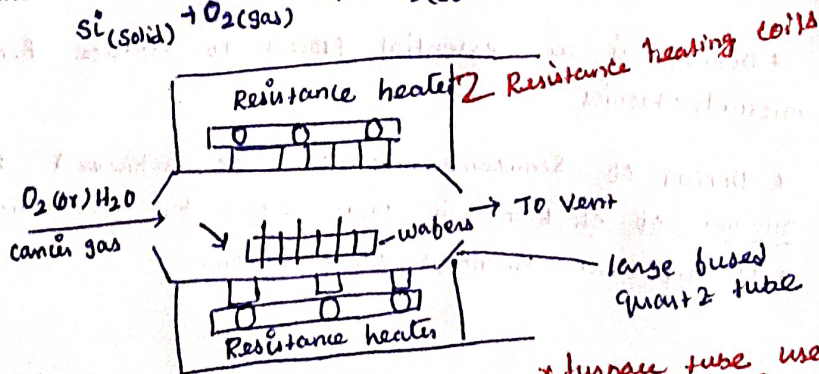 Si(solid) + O2(gas)
Resistance heater
2 Resistance heating coils
O2 (or) H2O
carrier gas
→ TO vent
wafers
large fused
quartz tube
Resistance heater
* furnace tube use